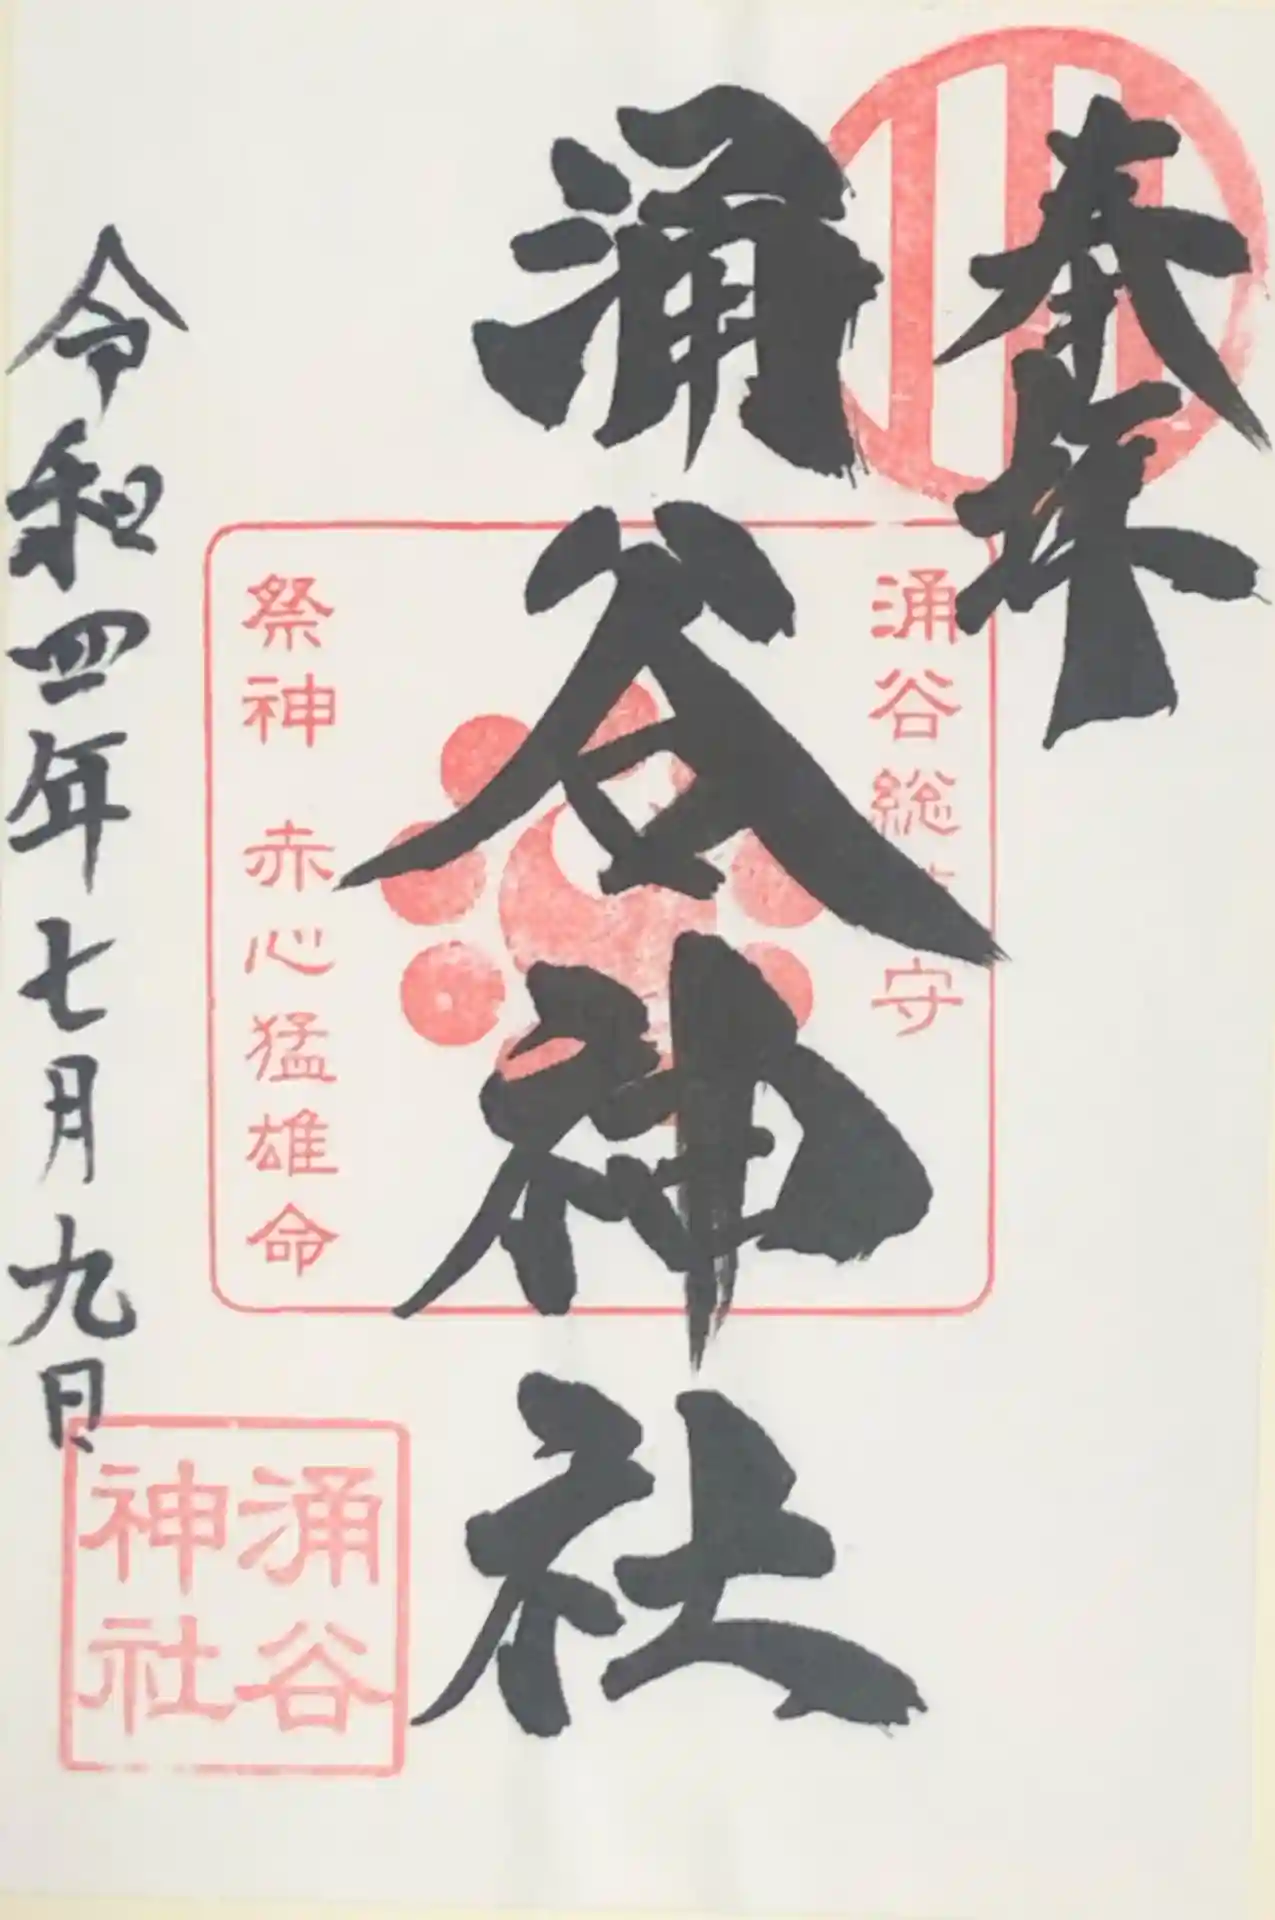 奉拝
涌谷総守
涌谷神社
祭神 赤心猛雄命
令和四年七月九日
涌谷
神社